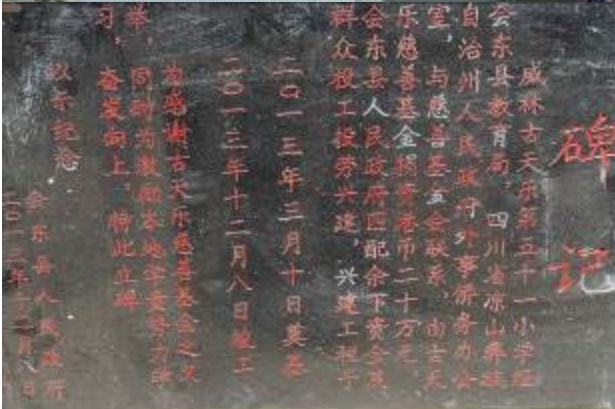 碑记
威林古天乐第五十一小学经
会东县教育局，四川省凉山彝族
自治州人民政府外事侨务办公
室，与慈善基金会联系，由古天
乐慈善基金捐资港币二十万元，
会东县人民政府匹配余下资金及
群众投工投劳兴建，兴建工程于
二〇一三年三月十日奠基
二〇一三年十二月八日竣工
为感谢古天乐慈善基金之义
举，同时为激励本地学童努力学
习，奋发向上，特此立碑
以示纪念
会东县人民政府
二〇一三年十二月八日